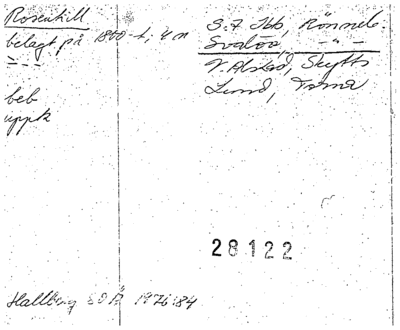 Rosenhill
belagt på 1800-t; 4 n
beb
uppk
S. 7 Ibb, Rönneb.
Svalöv, " -
V. Alstad, Skytts
Lund, Torna
28122
Hallberg SOÅ 1976:84